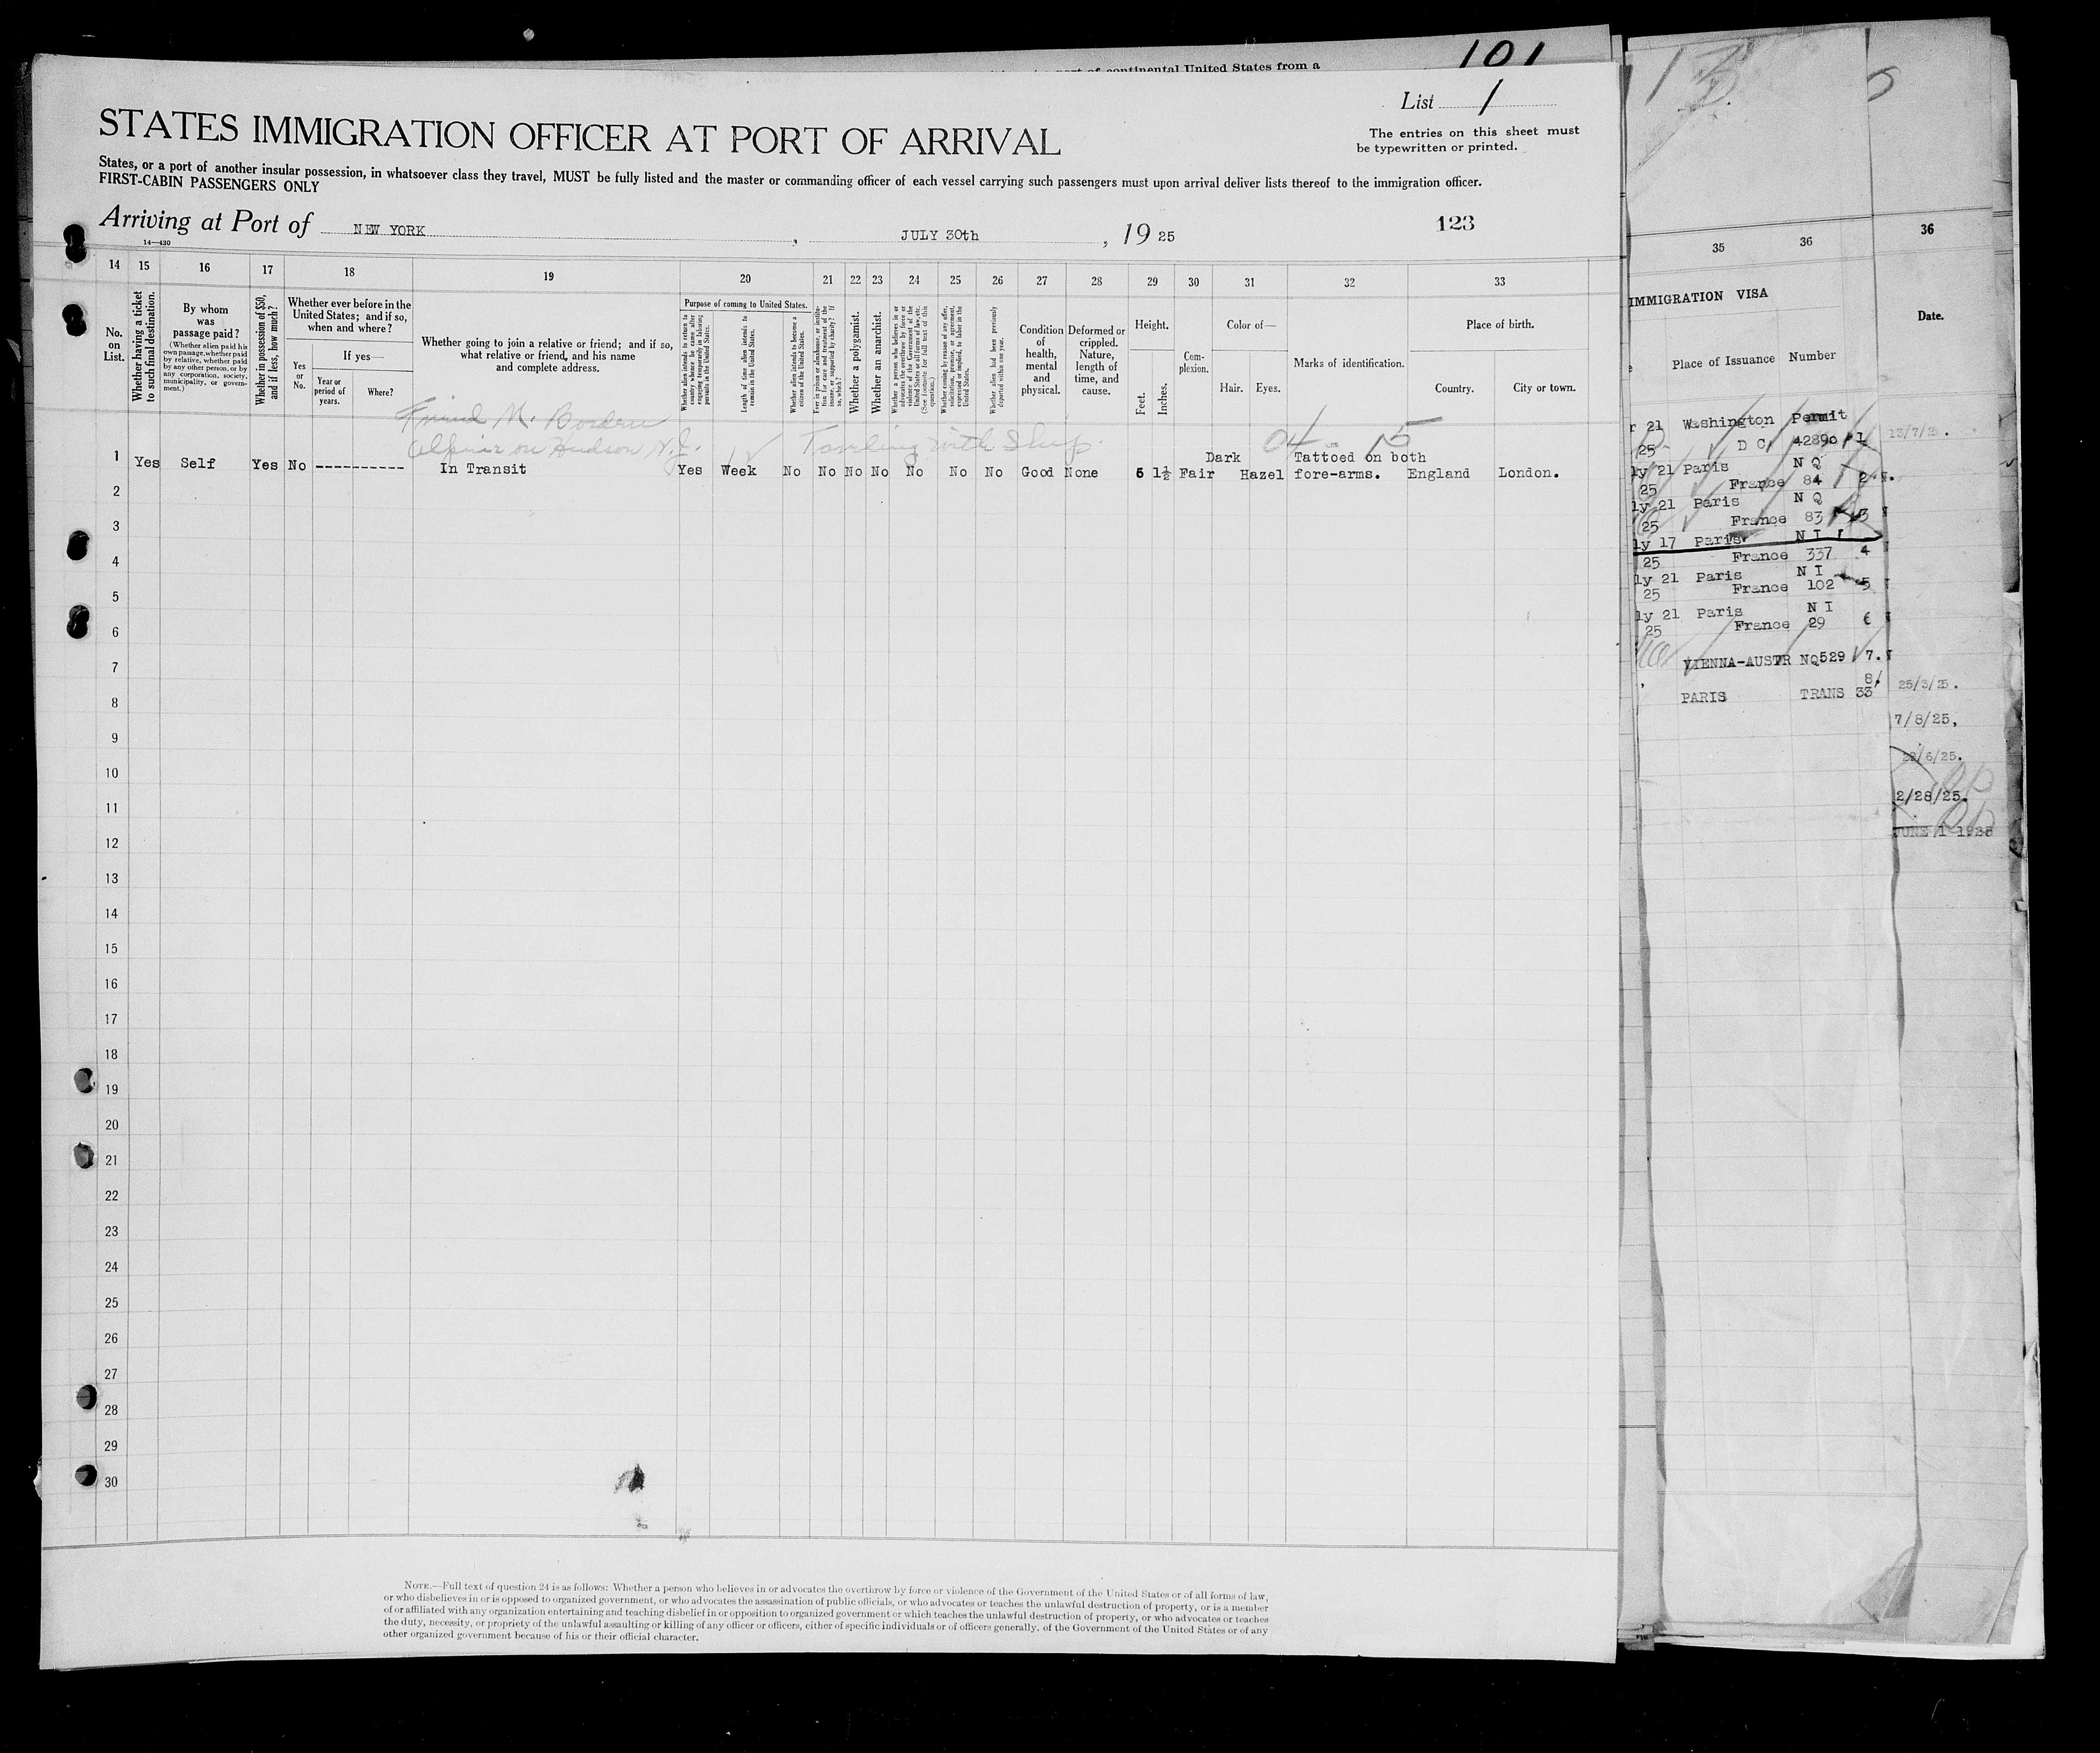 101
of continental United States from a
List 1
STATES IMMIGRATION OFFICER AT PORT OF ARRIVAL
The entries on this sheet must
be typewritten or printed.
States, or a port of another insular possession, in whatsoever class they travel, MUST be fully listed and the master or commanding officer of each vessel carrying such passengers must upon arrival deliver lists thereof to the immigration officer.
FIRST-CABIN PASSENGERS ONLY
Arriving at Port of NEW YORK, JULY 30th, 1925
123
14—430
14 15 16 17 18 19 20 21 22 23 24 25 26 27 28 29 30 31 32 33
No. on List.
Whether having a ticket to such final destination.
By whom was passage paid?
(Whether alien paid his own passage, whether paid by relative, whether paid by any other person, or by any corporation, society, municipality, or government.)
Whether in possession of $50, and if less, how much?
Whether ever before in the United States; and if so, when and where?
Yes or No.
If yes—
Year or period of years.
Where?
Whether going to join a relative or friend; and if so, what relative or friend, and his name and complete address.
Purpose of coming to United States.
Whether alien intends to return to country whence he came after engaging temporarily in laboring pursuits in the United States.
Length of time alien intends to remain in the United States.
Whether alien intends to become a citizen of the United States.
Ever in prison or almshouse, or institution for care and treatment of the insane, or supported by charity? If so, which?
Whether a polygamist.
Whether an anarchist.
Whether a person who believes in or advocates the overthrow by force or violence of the Government of the United States or all forms of law, etc. (See footnote for full text of this question.)
Whether coming by reason of any offer, solicitation, promise, or agreement, expressed or implied, to labor in the United States.
Whether alien had been previously deported within one year.
Condition of health, mental and physical.
Deformed or crippled. Nature, length of time, and cause.
Height.
Feet. Inches.
Complexion.
Color of—
Hair. Eyes.
Marks of identification.
Place of birth.
Country. City or town.
Friend M. Borden
Alpine on Hudson N.J.
04 - 15
Dark Tattoed on both
1 Yes Self Yes No ----------- In Transit Yes Week No No No No No No No Good None 5 1½ Fair Hazel fore-arms. England London.
2
3
4
5
6
7
8
9
10
11
12
13
14
15
16
17
18
19
20
21
22
23
24
25
26
27
28
29
30
NOTE.—Full text of question 24 is as follows: Whether a person who believes in or advocates the overthrow by force or violence of the Government of the United States or of all forms of law,
or who disbelieves in or is opposed to organized government, or who advocates the assassination of public officials, or who advocates or teaches the unlawful destruction of property, or is a member
of or affiliated with any organization entertaining and teaching disbelief in or opposition to organized government or which teaches the unlawful destruction of property, or who advocates or teaches
the duty, necessity, or propriety of the unlawful assaulting or killing of any officer or officers, either of specific individuals or of officers generally, of the Government of the United States or of any
other organized government because of his or their official character.
35 36
IMMIGRATION VISA
Place of Issuance Number
r 21 Washington Permit
25 D C 42890 1
ly 21 Paris N Q
25 France 84 2
ly 21 Paris N Q
25 France 83 3
ly 17 Paris N I
25 France 337 4
ly 21 Paris N I
25 France 102 5
ly 21 Paris N I
25 France 29 6
VIENNA-AUSTR NQ529 7.
8
PARIS TRANS 33
36
Date.
13/7/25.
25/3/25.
7/8/25,
22/6/25.
2/28/25.
JUNE 1 1925